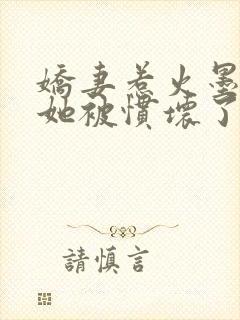 嬌妻惹火墨
她被慣壞了
請慎言